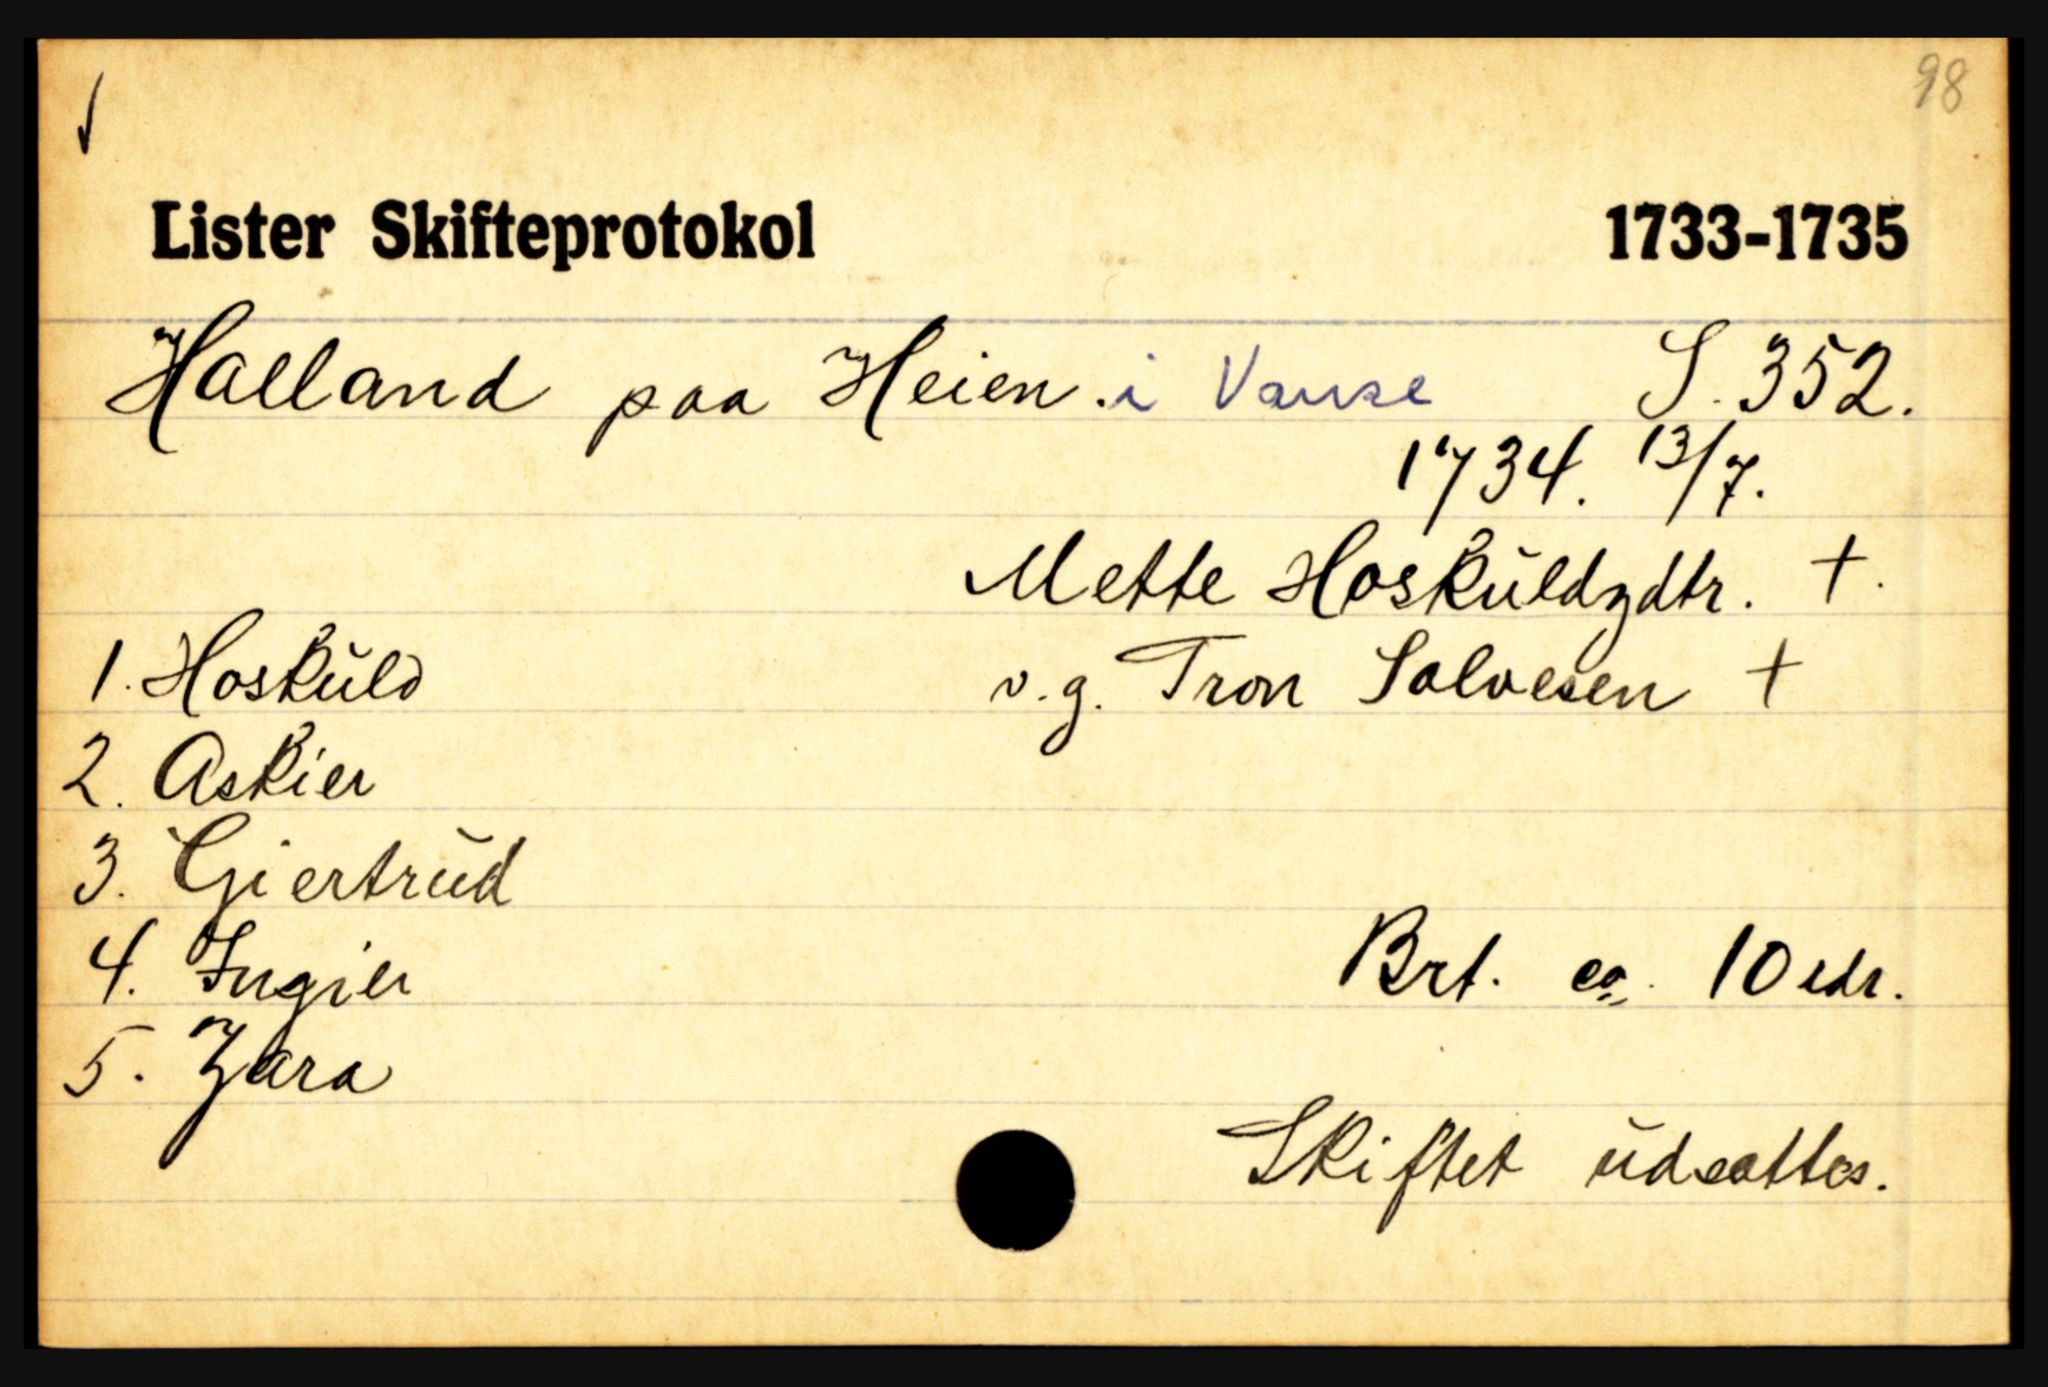 98
Lister Skifteprotokol 1733-1735
Halland paa Heien. i Vanse S. 352.
1734. 13/7.
Mette Hoskŭldzdtr. +.
1. Hoskŭld v.g. Tron Salvesen +
2. Askier
3. Giertrŭd
4. Ingier Brt. ca. 10 rdr.
5. Zara
Skiftet ŭdsattes.